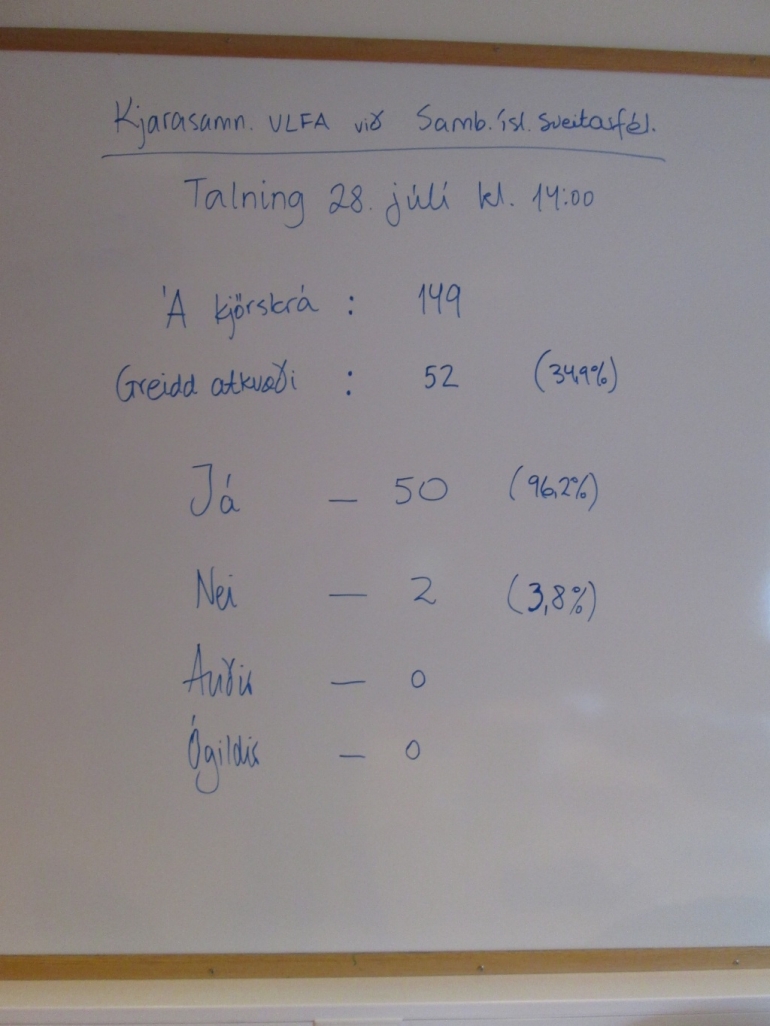 Kjarasamn. VLFA við Samb. ísl. Sveitarfél.
Talning 28. júlí kl. 14:00
Á kjörskrá : 149
Greidd atkvæði : 52 (34,9%)
Já — 50 (96,2%)
Nei — 2 (3,8%)
Auðir — 0
Ógildir — 0